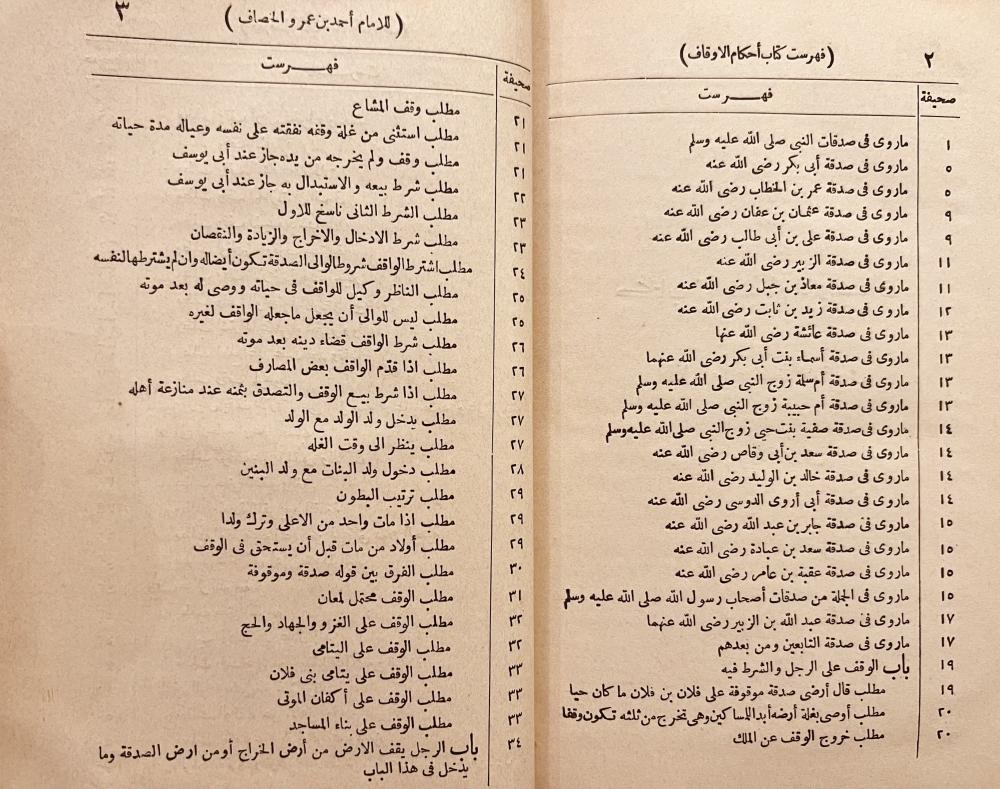 ٢
(فهرست كتاب أحكام الاوقاف)
صحيفة فهرست
١ ماروى فى صدقات النبى صلى الله عليه وسلم
٥ ماروى فى صدقة أبى بكر رضى الله عنه
٥ ماروى فى صدقة عمر بن الخطاب رضى الله عنه
٩ ماروى فى صدقة عثمان بن عفان رضى الله عنه
٩ ماروى فى صدقة على بن أبى طالب رضى الله عنه
١١ ماروى فى صدقة الزبير رضى الله عنه
١١ ماروى فى صدقة معاذ بن جبل رضى الله عنه
١٢ ماروى فى صدقة زيد بن ثابت رضى الله عنه
١٣ ماروى فى صدقة عائشة رضى الله عنها
١٣ ماروى فى صدقة أسماء بنت أبى بكر رضى الله عنهما
١٣ ماروى فى صدقة أم سلمة زوج النبى صلى الله عليه وسلم
١٣ ماروى فى صدقة أم حبيبة زوج النبى صلى الله عليه وسلم
١٤ ماروى فى صدقة صفية بنت حيى زوج النبى صلى الله عليه وسلم
١٤ ماروى فى صدقة سعد بن أبى وقاص رضى الله عنه
١٤ ماروى فى صدقة خالد بن الوليد رضى الله عنه
١٤ ماروى فى صدقة أبى أروى الدوسى رضى الله عنه
١٥ ماروى فى صدقة جابر بن عبد الله رضى الله عنه
١٥ ماروى فى صدقة سعد بن عبادة رضى الله عنه
١٥ ماروى فى صدقة عقبة بن عامر رضى الله عنه
١٥ ماروى فى الجملة من صدقات أصحاب رسول الله صلى الله عليه وسلم
١٧ ماروى فى صدقة عبد الله بن الزبير رضى الله عنهما
١٧ ماروى فى صدقة التابعين ومن بعدهم
١٩ باب الوقف على الرجل والشرط فيه
١٩ مطلب قال أرضى صدقة موقوفة على فلان بن فلان ما كان حيا
٢٠ مطلب أوصى بغلة أرضه أبدا للمساكين وهى تخرج من ثلثه تكون وقفا
٢٠ مطلب خروج الوقف عن الملك
٣
(للامام أحمد بن عمرو الخصاف)
صحيفة فهرست
٢١ مطلب وقف المشاع
٢١ مطلب استثنى من غلة وقفه نفقته على نفسه وعياله مدة حياته
٢١ مطلب وقف ولم يخرجه من يده جاز عند أبى يوسف
٢٢ مطلب شرط بيعه والاستبدال به جاز عند أبى يوسف
٢٣ مطلب الشرط الثانى ناسخ للاول
٢٣ مطلب شرط الادخال والاخراج والزيادة والنقصان
٢٤ مطلب اشترط الواقف شروطا لوالى الصدقة تكون أيضاله وان لم يشترطها لنفسه
٢٥ مطلب الناظر وكيل للواقف فى حياته ووصى له بعد موته
٢٥ مطلب ليس للوالى أن يجعل ماجعله الواقف لغيره
٢٦ مطلب شرط الواقف قضاء دينه بعد موته
٢٦ مطلب اذا قدّم الواقف بعض المصارف
٢٧ مطلب اذا شرط بيع الوقف والتصدق بثمنه عند منازعة أهله
٢٧ مطلب يدخل ولد الولد مع الولد
٢٧ مطلب ينظر الى وقت الغله
٢٨ مطلب دخول ولد البنات مع ولد البنين
٢٩ مطلب ترتيب البطون
٢٩ مطلب اذا مات واحد من الاعلى وترك ولدا
٢٩ مطلب أولاد من مات قبل أن يستحق فى الوقف
٣٠ مطلب الفرق بين قوله صدقة وموقوفة
٣١ مطلب الوقف محتمل لمعان
٣٢ مطلب الوقف على الغزو والجهاد والحج
٣٢ مطلب الوقف على اليتامى
٣٣ مطلب الوقف على يتامى بنى فلان
٣٣ مطلب الوقف على أكفان الموتى
٣٣ مطلب الوقف على بناء المساجد
٣٤ باب الرجل يقف الارض من أرض الخراج أو من ارض الصدقة وما
يدخل فى هذا الباب